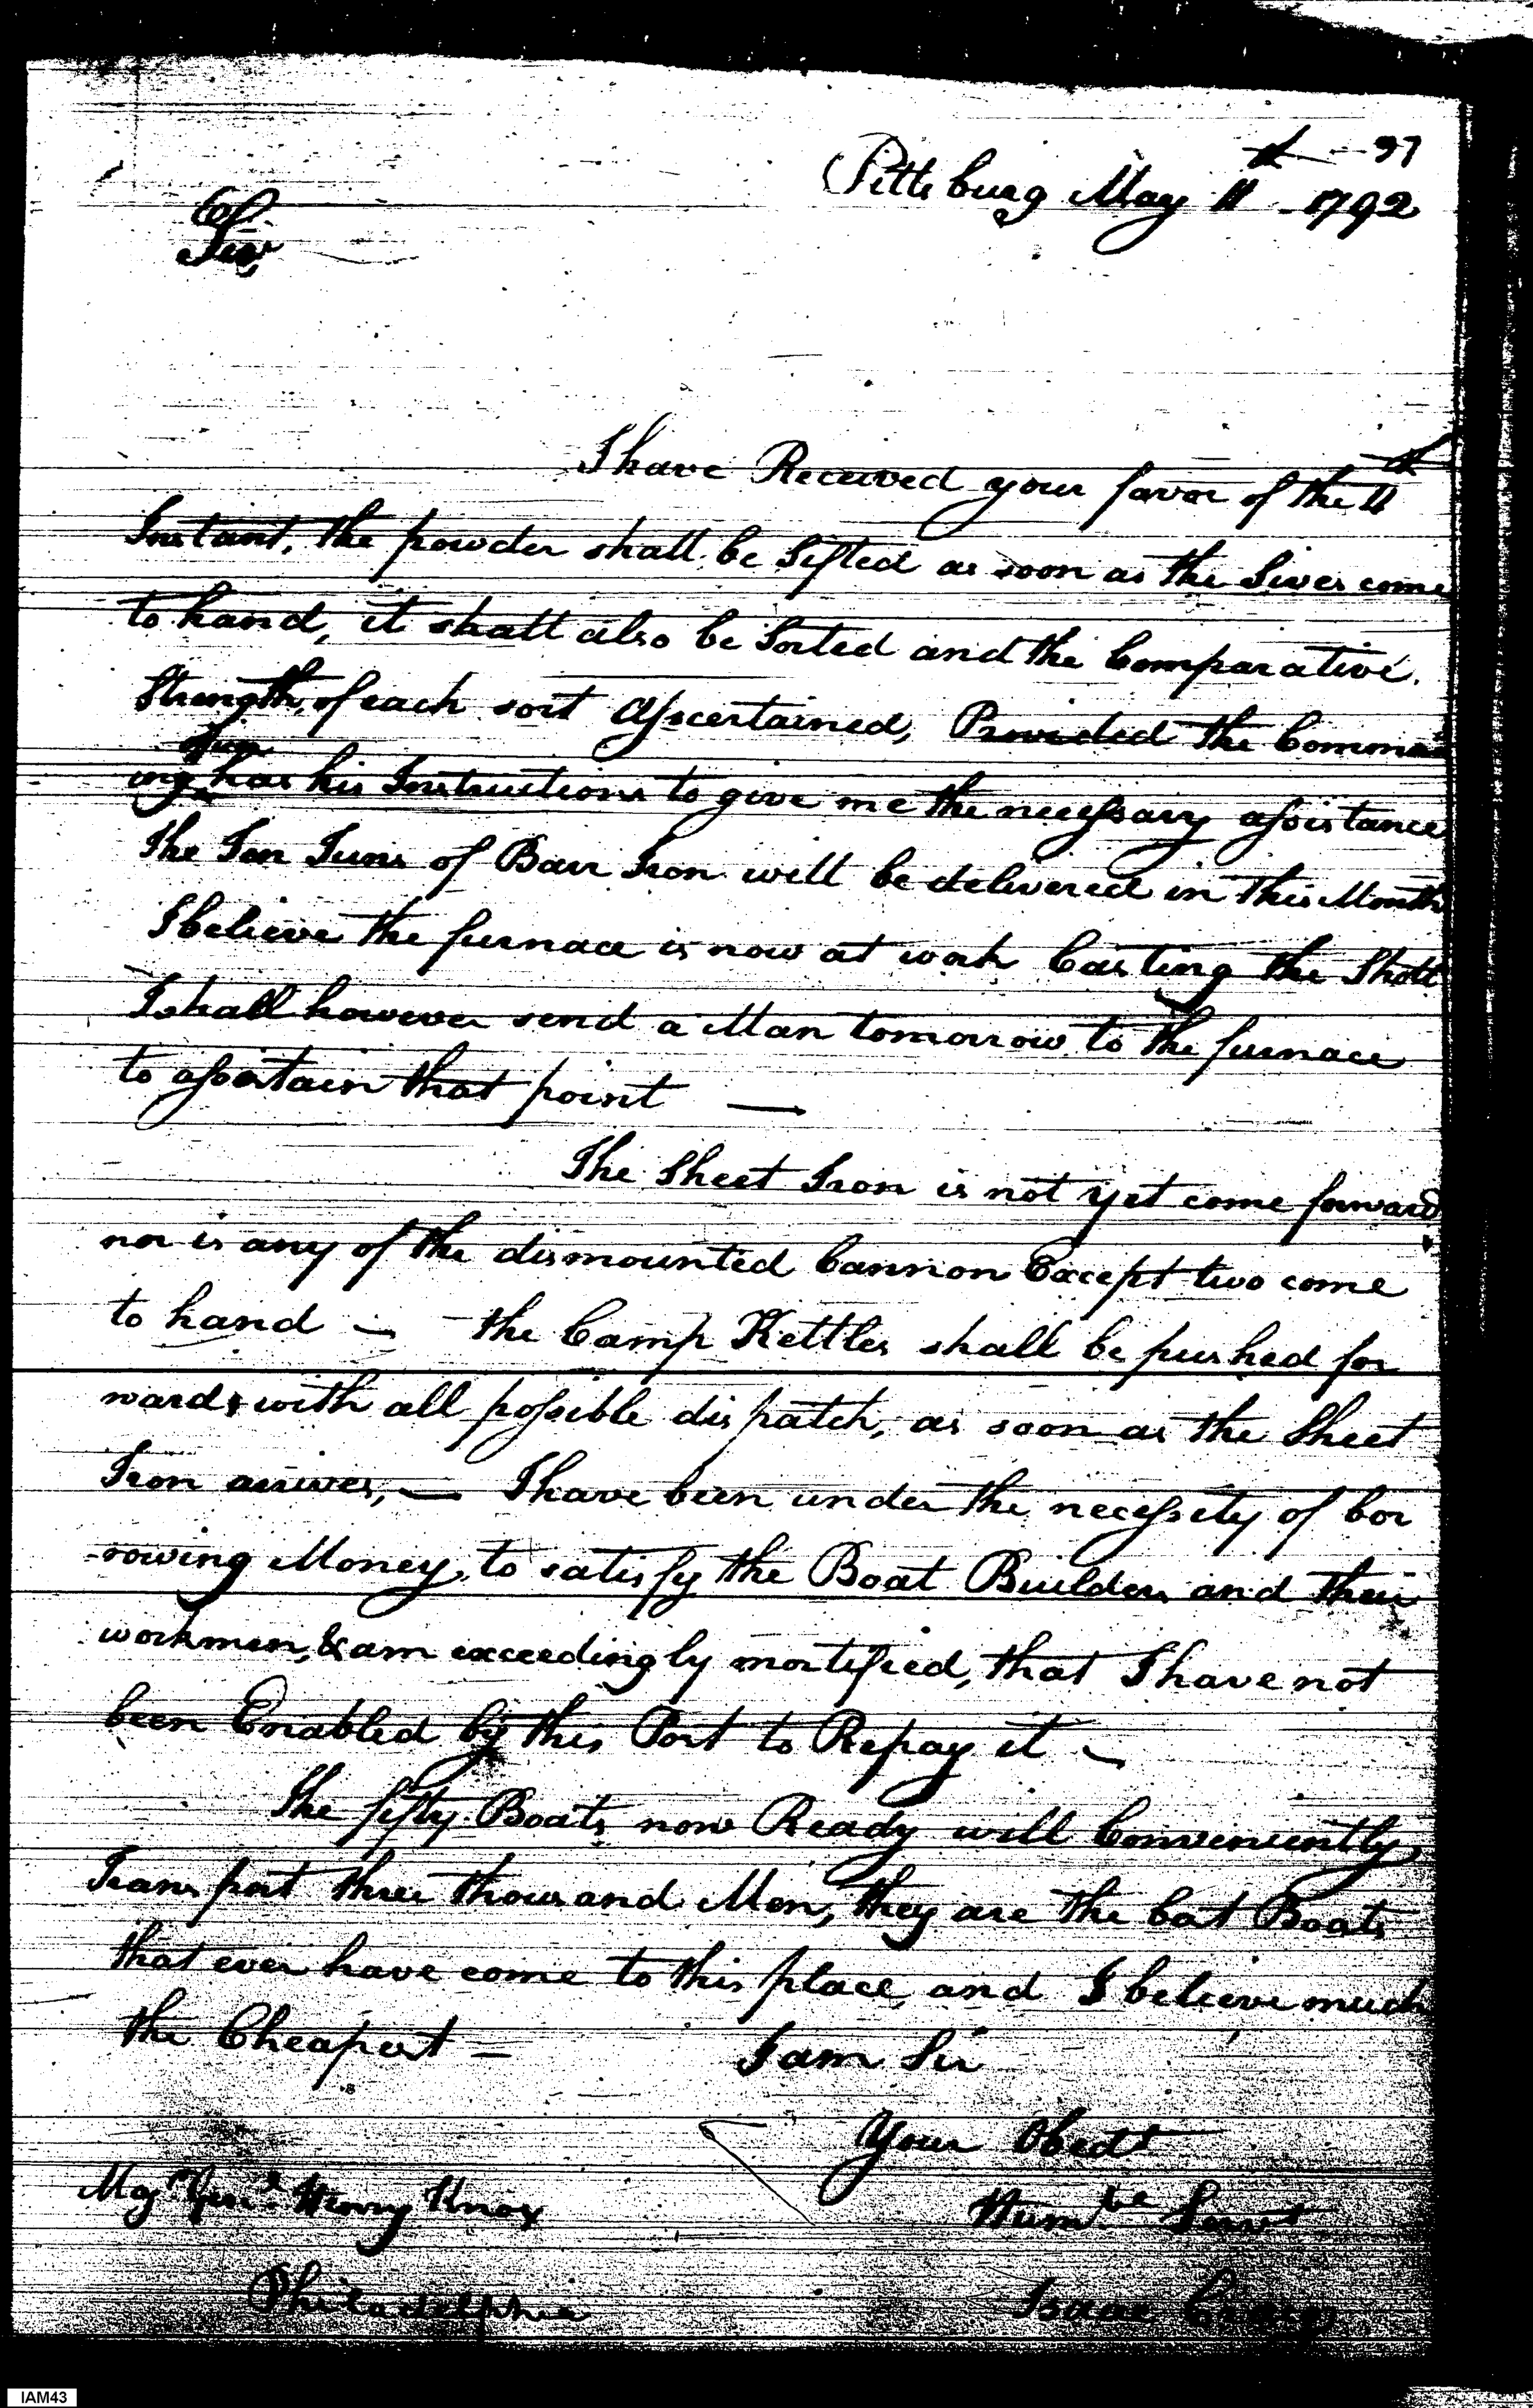 97
Pittsburg May 11th 1792
Sir,
I have Received your favor of the 4th
Instant, the powder shall be Sifted as soon as the Sives come
to hand, it shall also be Sorted and the Comparative
Strength, of each sort Assertained, Provided the Command
officer
ing has his Instructions to give me the necessary assistance
The Ton Tuns of Barr Iron will be delivered in this Month
I believe the furnace is now at work Casting the Shott
I shall however send a Man tomorrow to the furnace
to assertain that point —
The Sheet Iron is not yet come forward
nor is any of the dismounted Cannon Except two come
to hand — the Camp Kettles shall be pushed for
wards with all possible dispatch, as soon as the Sheet
Iron arrives, — I have been under the necessity of bor
-rowing Money, to satisfy the Boat Builders and their
workmen, & am exceedingly mortified, that I have not
been Enabled by this Post to Repay it —
The fifty Boats now Ready will Conveniently
Transport three thousand Men, they are the best Boats
that ever have come to this place, and I believe much
the Cheapest —
I am Sir
Your Obedt
Humble Servt
Isaac Craig
Majr Genl Henry Knox
Philadelphia
IAM43